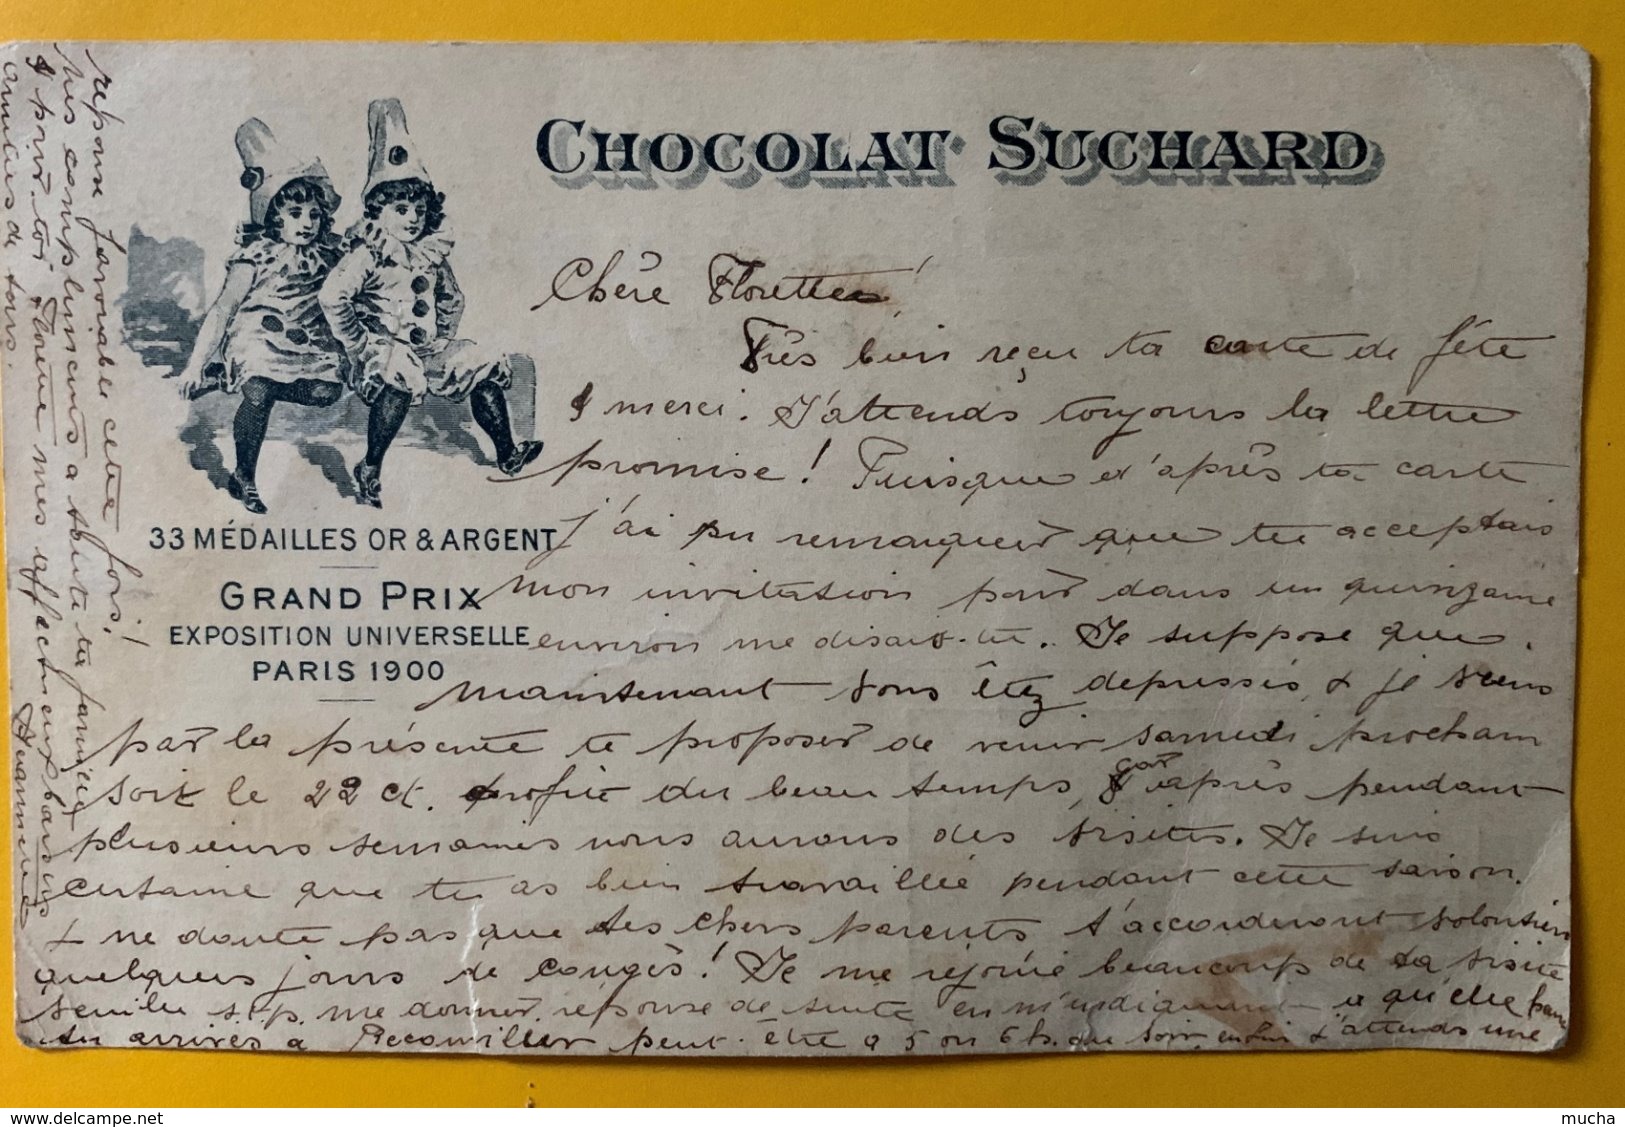 CHOCOLAT SUCHARD
33 MÉDAILLES OR & ARGENT
GRAND PRIX
EXPOSITION UNIVERSELLE
PARIS 1900
Chère Florette!
Très bien reçu ta carte de fête
& merci. J'attends toujours la lettre
promise! Puisque d'après ta carte
j'ai pu remarquer que tu acceptais
mon invitation pour dans un quinzaine
environ me disais-tu. Je suppose que
maintenant vous êtez depressés, & je viens
par la présente te proposer de venir samedi prochain
soit le 22 ct. profite du beau temps, car après pendant
plusieurs semaines nous aurons des visites. Je suis
certaine que tu as bien travaillée pendant cette saison.
& ne doute pas que tes chers parents t'accorderont volontiers
quelques jours de congés! Je me réjouie beaucoup de ta visite
Veuille s.v.p. me donner réponse de suite en m'indiquant à qu'elle heure
tu arrives à Reconvilier peut-être à 5 ou 6 h. du soir, enfin j'attends une
réponse favorable cette fois!
Mes compliments à toute ta famille
& pour toi Florette mes affectueux baisers
amitiés de tous.